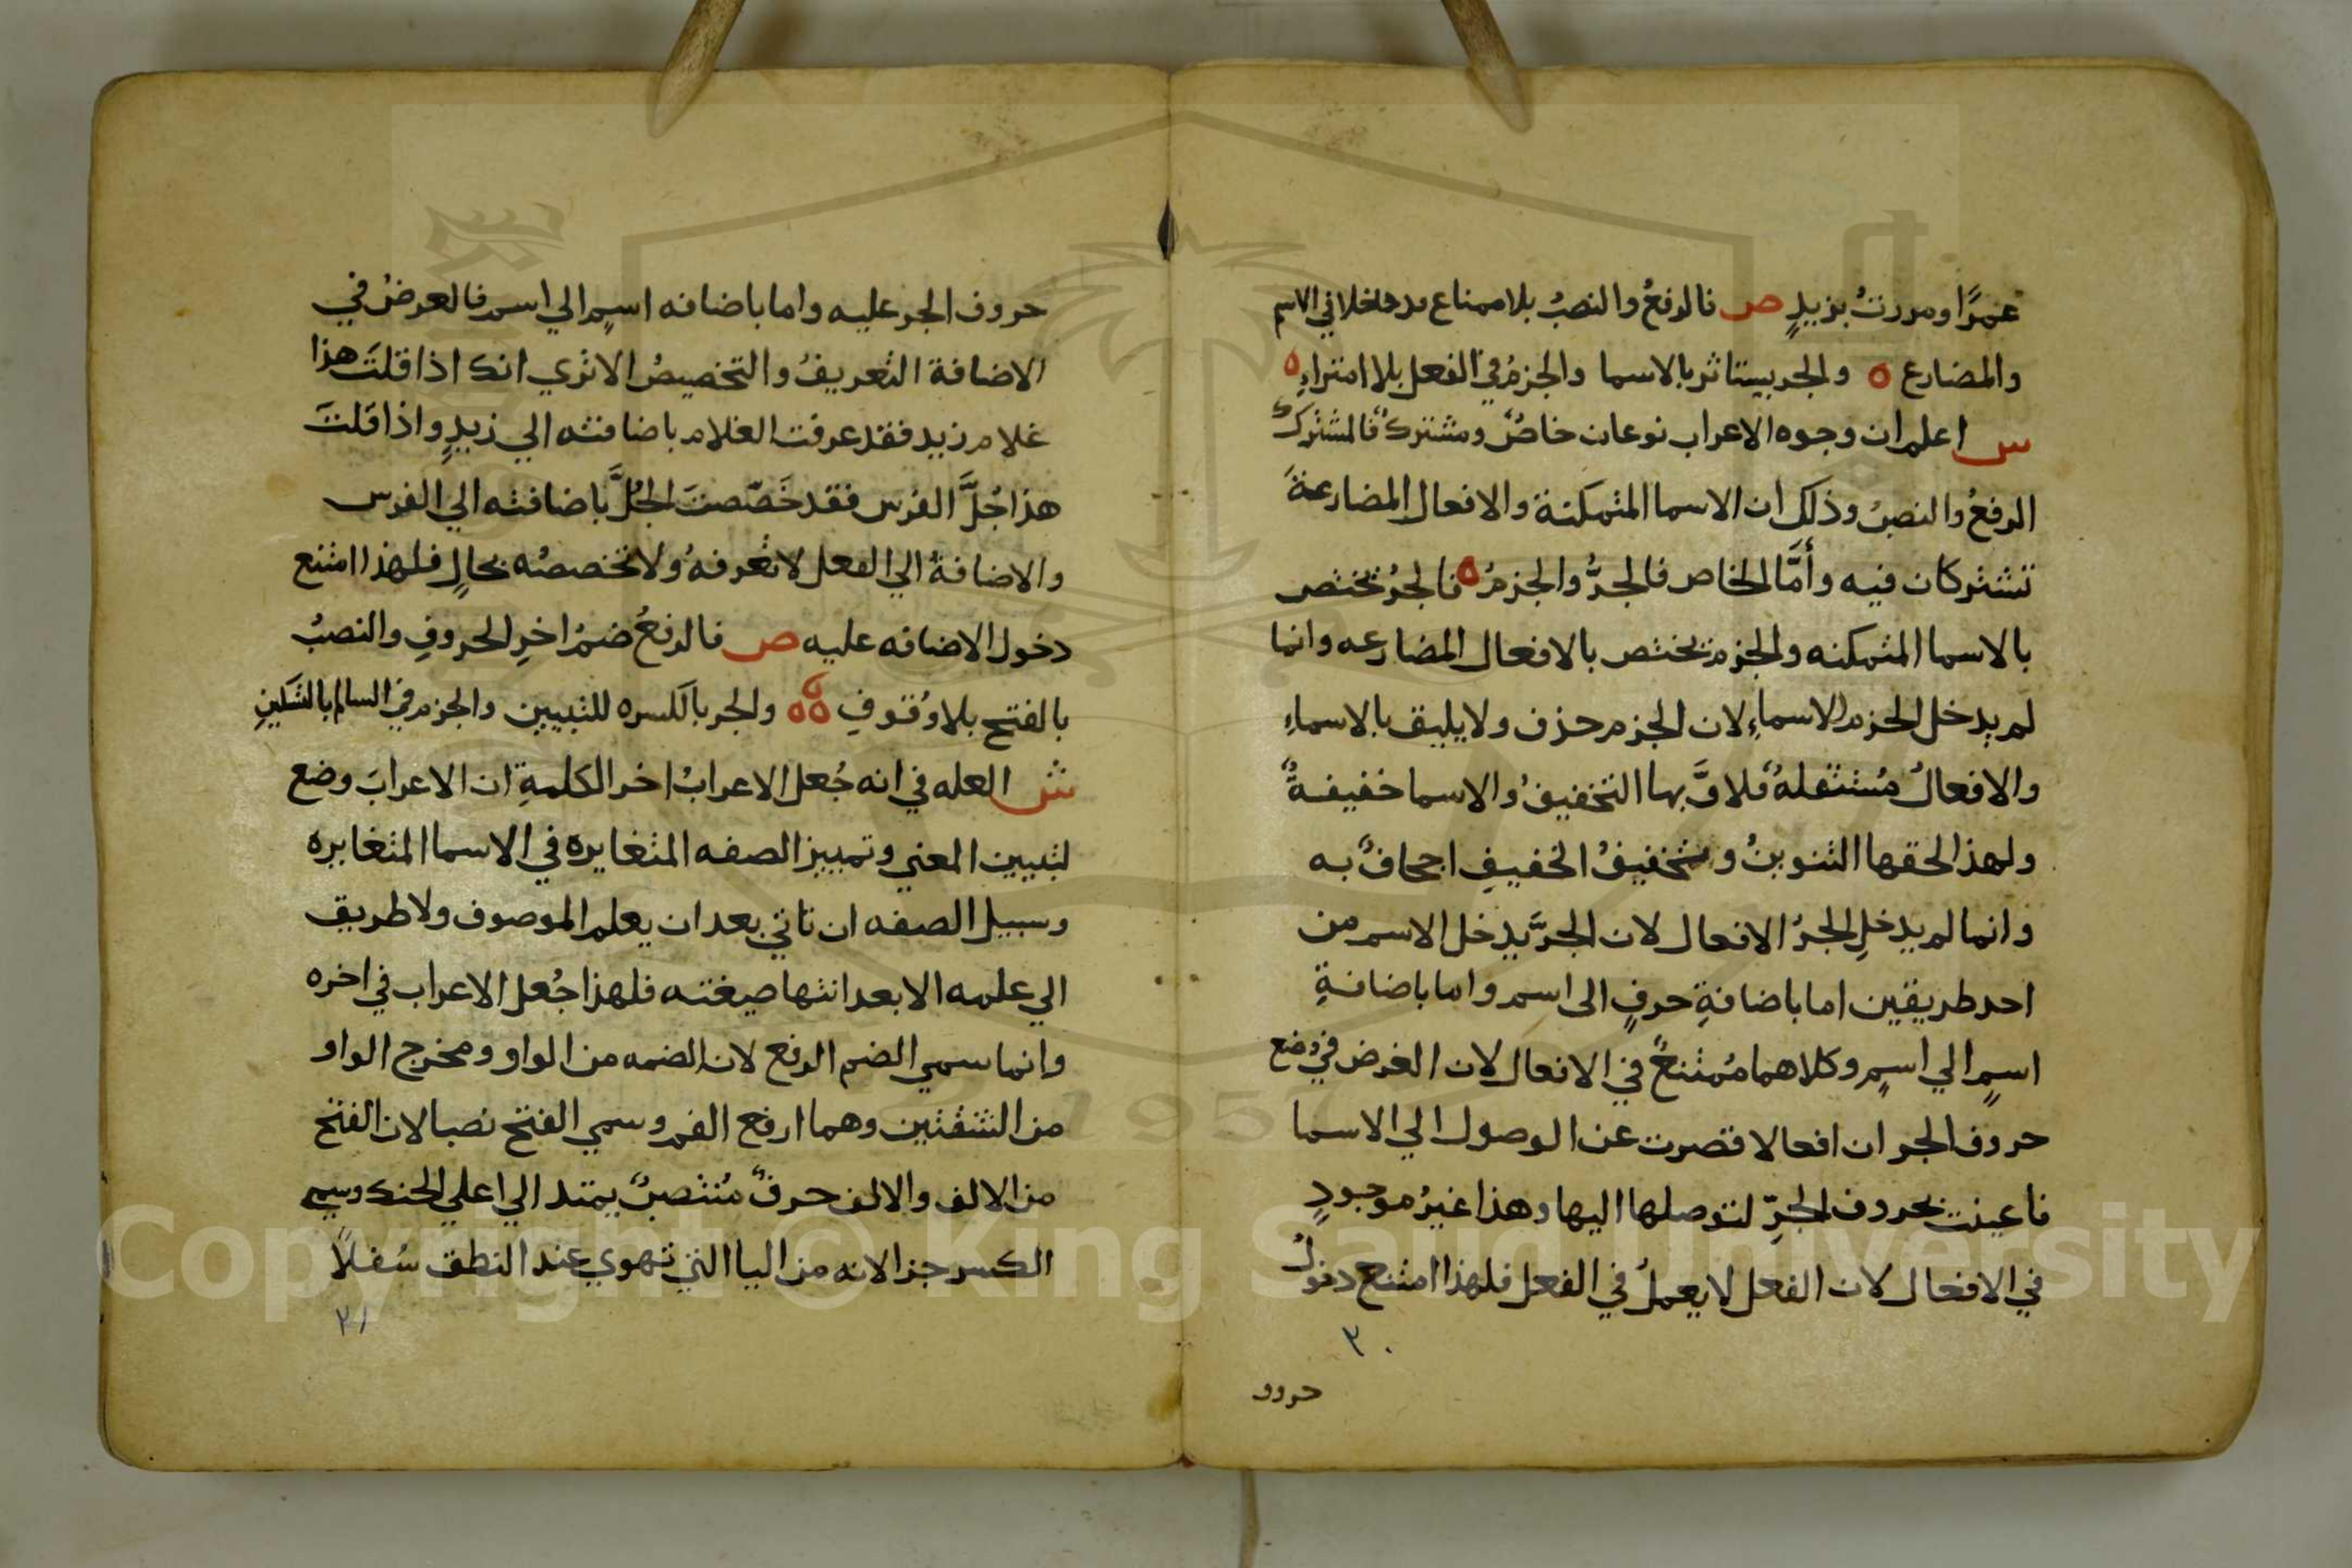 عَمرًا ومررتُ بزيدٍ ص فالرفعُ والنصبُ بلا ممناع قد دخلا في الاسم
والمضارع ه والجر يستاثر بالاسما والجزمُ في الفعل بلا امتراءِ ه
ش اعلم ان وجوه الاعراب نوعان خاصٌ ومشتركٌ فالمشترك
الرفعُ والنصبُ وذلك ان الاسما المتمكنة والافعال المضارعةَ
تشتركان فيه وأمَّا الخاص فالجرُّ والجزمُ ه فالجرُ يختص
بالاسما المتمكنه والجزم يختص بالافعال المضارعه وانما
لم يدخل الجزم الاسماءِ لان الجزم حذف ولا يليق بالاسماءِ
والافعالُ مُستثقلةٌ فلاقَ بها التخفيفُ والاسما خفيفةٌ
ولهذا لحقها التنوينُ وتخفيفُ الخفيفِ اجحافٌ به
وانما لم يدخلِ الجرُ الافعال لان الجرَّ يدخل الاسم من
احد طريقين اما باضافةِ حرفٍ الى اسم واما باضافةِ
اسمٍ الي اسمٍ وكلاهما مُمتنعٌ في الافعال لان الغرض في وضع
حروف الجر ان افعالا قصرت عن الوصول الي الاسما
فاعينت بحروف الجرِّ لتوصلها اليها وهذا غيرُ موجودٍ
في الافعال لان الفعل لا يعملُ في الفعل فلهذا امتنع دخولُ
٣٠
حروف
حروف الجر عليه واما باضافه اسمٍ الي اسم فالغرضُ في
الاضافة التعريفُ والتخصيصُ الا تري انك اذا قلتَ هذا
غلام زيد فقد عرفت الغلام باضافته الي زيدٍ واذا قلتَ
هذا جُلَّ الفرس فقد خَصّصتَ الجُلَّ باضافته الي الفرس
والاضافةُ الي الفعل لا تعُرفهُ ولا تخصصُه بحالٍ فلهذا امتنع
دخول الاضافه عليه ص فالرفعُ ضمُ اخرِ الحروفِ والنصبُ
بالفتح بلا وُقوفِ ه ه ه والجر بالكسره للتبيين والجزم في السالم بالتسكينِ
ش العله في انه جُعل الاعرابُ اخر الكلمةِ ان الاعرابَ وضع
لتبيين المعني وتمييز الصفه المتغايره في الاسما المتغايره
وسبيل الصفه ان تاتي بعد ان يعلم الموصوف ولا طريق
الي علمه الا بعد انتها صيغته فلهذا جُعل الاعراب في اخره
وانما سمي الضم الرفع لان الضمه من الواو ومخرج الواو
من الشفتين وهما ارفع الفم وسمي الفتح نصبا لان الفتح
من الالف والالف حرفٌ مُنتصبٌ يمتد الي اعلي الحنك وسمي
الكسر جرا لانه من اليا التي تهوي عند النطق سُفلًا
٣١
Copyright © King Saud University
1957